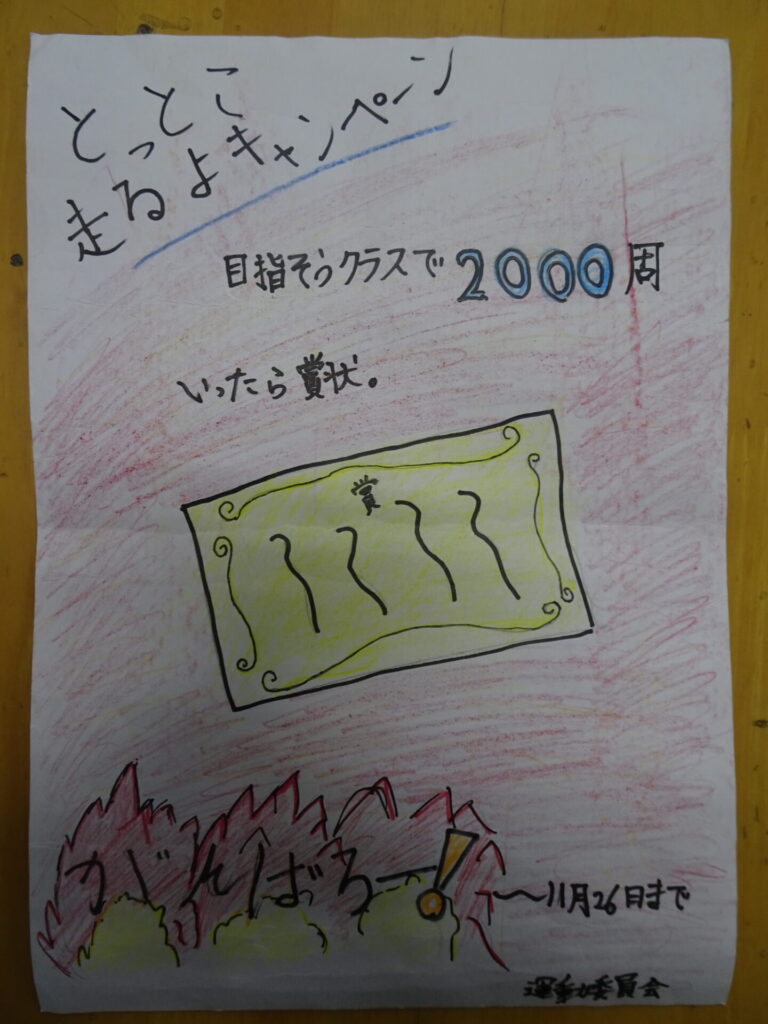 とっとこ
走るよキャンペーン
目指そうクラスで2000周
いったら賞状。
賞
がんばろー!
～11月26日まで
運動委員会